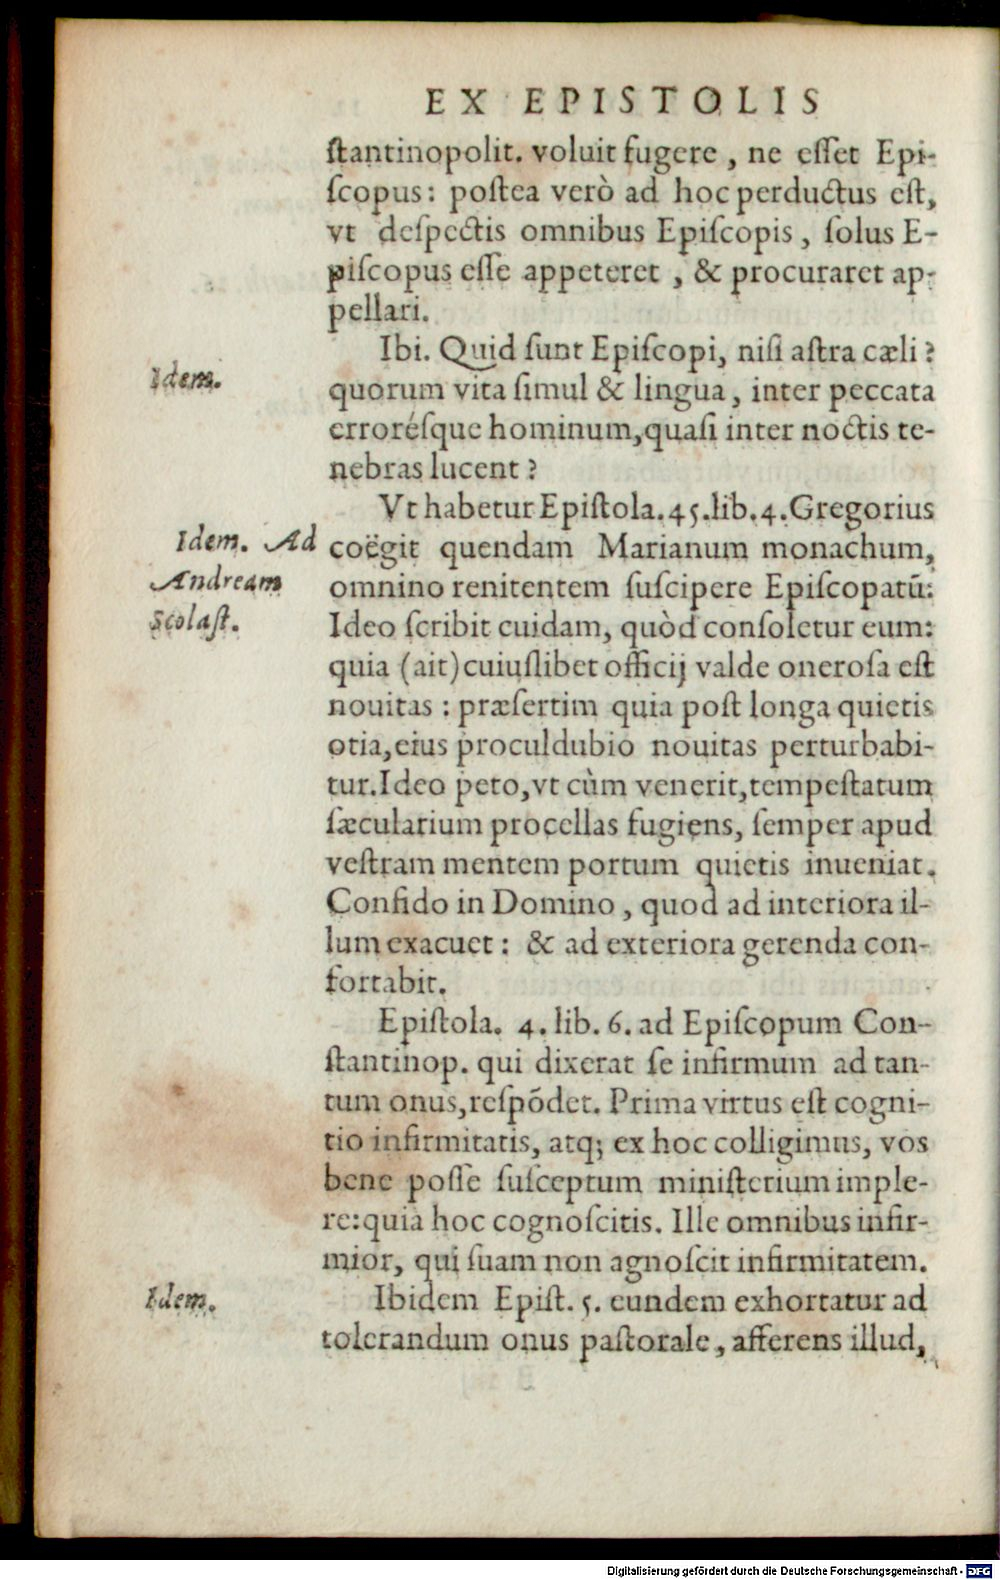 EX EPISTOLIS
ſtantinopolit. voluit fugere, ne eſſet Epi-
ſcopus: poſtea verò ad hoc perductus eſt,
vt deſpectis omnibus Epiſcopis, ſolus E-
piſcopus eſſe appeteret, & procuraret ap-
pellari.
Ibi. Quid ſunt Epiſcopi, niſi aſtra cæli?
Idem.
quorum vita ſimul & lingua, inter peccata
erroréſque hominum, quaſi inter noctis te-
nebras lucent?
Vt habetur Epiſtola. 45. lib. 4. Gregorius
Idem. Ad
Andream
Scolaſt.
coëgit quendam Marianum monachum,
omnino renitentem ſuſcipere Epiſcopatū:
Ideo ſcribit cuidam, quòd conſoletur eum:
quia (ait) cuiuſlibet officij valde oneroſa eſt
nouitas: præſertim quia poſt longa quietis
otia, eius proculdubio nouitas perturbabi-
tur. Ideo peto, vt cùm venerit, tempeſtatum
ſæcularium procellas fugiens, ſemper apud
veſtram mentem portum quietis inueniat.
Confido in Domino, quod ad interiora il-
lum exacuet: & ad exteriora gerenda con-
fortabit.
Epiſtola. 4. lib. 6. ad Epiſcopum Con-
ſtantinop. qui dixerat ſe infirmum ad tan-
tum onus, reſpōdet. Prima virtus eſt cogni-
tio infirmitatis, atq; ex hoc colligimus, vos
bene poſſe ſuſceptum miniſterium imple-
re: quia hoc cognoſcitis. Ille omnibus infir-
mior, qui ſuam non agnoſcit infirmitatem.
Idem.
Ibidem Epiſt. 5. eundem exhortatur ad
tolerandum onus paſtorale, afferens illud,
Digitalisierung gefördert durch die Deutsche Forschungsgemeinschaft - DFG